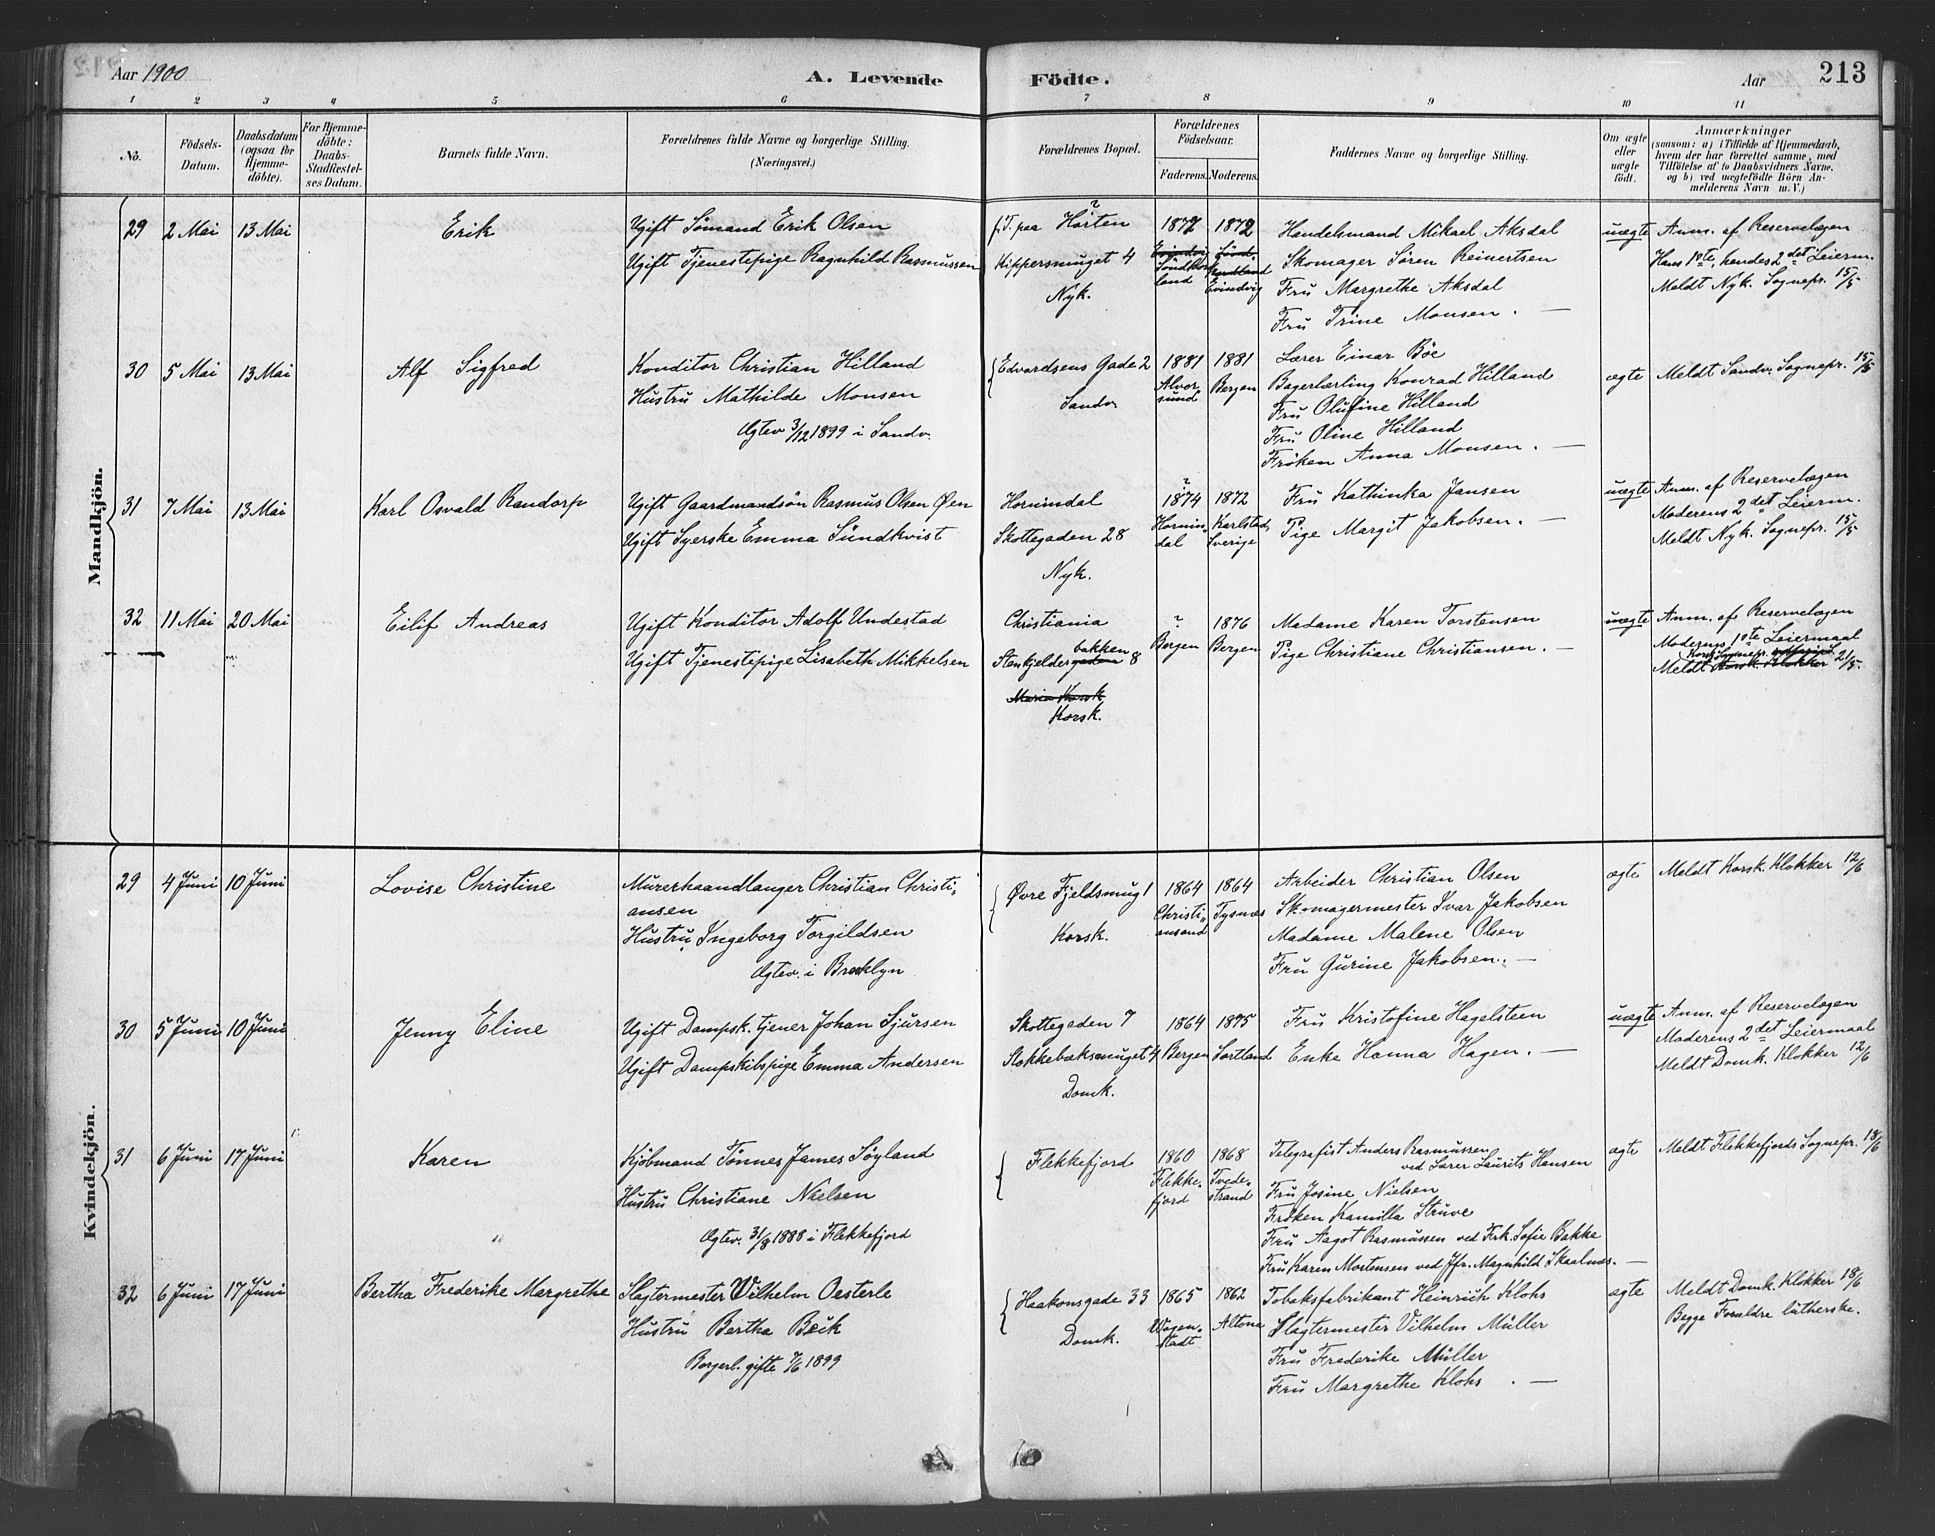 Aar 1900
A. Levende
Födte.
Aar
213
1 2 3 4 5 6 7 8 9 10 11
No.
Födsels-Datum.
Daabsdatum (ogsaa for Hjemmedöbte).
For Hjemmedöbte: Daabs-Stadfæstelses Datum.
Barnets fulde Navn.
Forældrenes fulde Navne og borgerlige Stilling. (Næringsvei.)
Forældrenes Bopæl.
Forældrenes Födselsaar.
Faderens. Moderens.
Faddernes Navne og borgerlige Stilling.
Om ægte eller uægte födt.
Anmærkninger
(saasom: a) i Tilfælde af Hjemmedaab, hvem der har forrettet samme, med Tilföielse af to Daabsvidners Navne, og b) ved uægtefödte Börn Anmelderens Navn m. V.)
Mandkjön.
29 2 Mai 13 Mai Erik
Ugift Sømand Erik Olsen
Ugift Tjenestepige Ragnhild Rasmussen
f. T. paa Horten ?
Kippersmuget 4
Nyk.
1872
Söndhordland
1872
Evindvig
Handelsmand Mikael Aksdal
Skomager Sören Reinertsen
Fru Margrethe Aksdal
Fru Trine Monsen. —
uægte
Anm. af Reservelægen
Hans 1ste, hendes 2det Leierm.
Meldt Nyk. Sognepr. 15/5
30 5 Mai 13 Mai Alf Sigfred
Konditor Christian Hilland
Hustru Mathilde Monsen
Ægtev. 3/12 1899 i Sandv.
Edvardsens Gade 2
Sandv
1881
Alversund
1881
Bergen
Lærer Einar Böe
Bagerlærling Konrad Hilland
Fru Olufine Hilland
Fru Oline Hilland
Fröken Anna Monsen. —
ægte
Meldt Sandv. Sognepr. 15/5
31 7 Mai 13 Mai Karl Osvald Randorp
Ugift Gaardmandsön Rasmus Olsen Øen
Ugift Syerske Emma Sundkvist
Hornindal
Skottegaden 28
Nyk.
?
1874
Hornindal
1872
Karlstad, Sverige
Fru Kathinka Jansen
Pige Margit Jakobsen. —
uægte
Anm. af Reservelægen
Moderens 2det Leierm.
Meldt Nyk. Sognepr. 15/5
32 11 Mai 20 Mai Eilif Andreas
Ugift Konditor Adolf Undestad
Ugift Tjenestepige Lisabeth Mikkelsen
Christiania
bakken
Stenkjeldergaden 8
Maria Korsk
Korsk.
?
Bergen
1876
Bergen
Madame Karen Torstensen
Pige Christiane Christiansen. —
uægte
Anm. af Reservelægen
Moderens 1ste Leiermaal
Meldt Korsk. Klokker 21/5.
Kvindekjön.
29 4 Juni 10 Juni Lovise Christine
Murerhaandlanger Christian Christiansen
Hustru Ingeborg Torgildsen
Ægtev. i Brooklyn
Øvre Fjeldsmug 1
Korsk.
1864
Christiansand
1864
Tysnæs
Arbeider Christian Olsen
Skomagermester Ivar Jakobsen
Madame Malene Olsen
Fru Gurine Jakobsen. —
ægte
Meldt Korsk. Klokker 12/6
30 5 Juni 10 Juni Jenny Eline
Ugift Dampsk. tjener Johan Sjursen
Ugift Dampskibspige Emma Andersen
Skottegaden 7
Stokkebæksmuget 4
Domk.
1864
Bergen
1875
Sortland
Fru Kristofine Hagelsteen
Enke Hanna Hagen. —
uægte
Anm. af Reservelægen
Moderens 2det Leiermaal
Meldt Domk. Klokker 12/6
31 6 Juni 17 Juni Karen
Kjöbmand Tönnes James Söyland
Hustru Christiane Nielsen
Ægtev. 31/8 1888 i Flekkefjord
Flekkefjord
1860
Flekkefjord
1868
Tvedestrand
Telegrafist Anders Rasmussen
ved Lærer Laurits Hansen
Fru Josine Nielsen
Fröken Kamilla Struve
Fru Aagot Rasmussen ved Frk. Sofie Bakke
Fru Karen Mortensen ved Jfr. Magnhild Skaalnæs. —
ægte
Meldt Flekkefjords Sognepr. 18/6
32 6 Juni 17 Juni Bertha Frederike Margrethe
Slagtermester Wilhelm Oesterle
Hustru Bertha Beik
Borgerl. gifte 7/6 1899
Haakonsgade 33
Domk.
1865
Wagenstadt
1862
Altona
Tobaksfabrikant Heinrich Klohs
Slagtermester Vilhelm Müller
Fru Frederike Müller
Fru Margrethe Klohs. —
ægte
Meldt Domk. Klokker 18/6
Begge Forældre lutherske.